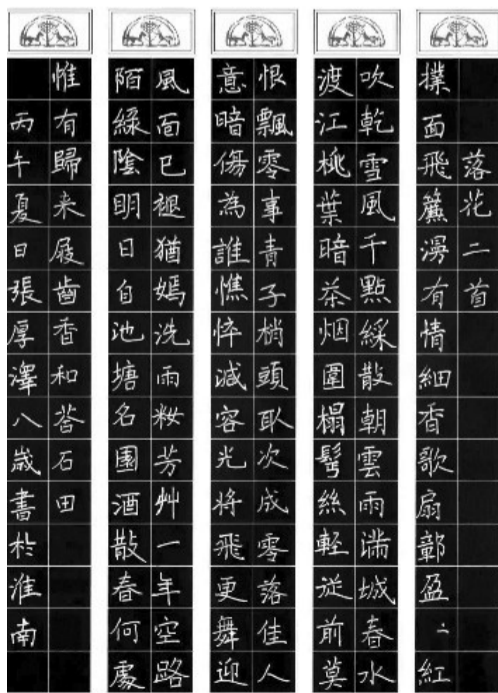 落花二首
撲面飛簾漫有情細香歌扇鄣盈〻紅
吹乾雪風千點綵散朝雲雨滿城春水
渡江桃葉暗茶烟圍榻髩絲輕從前莫
恨飄零事青子梢頭取次成零落佳人
意暗傷為誰憔悴減容光將飛更舞迎
風面已褪猶嫣洗雨粧芳艸一年空路
陌綠陰明日自池塘名園酒散春何處
惟有歸来屐齒香和荅石田
丙午夏日張厚澤八歲書於淮南